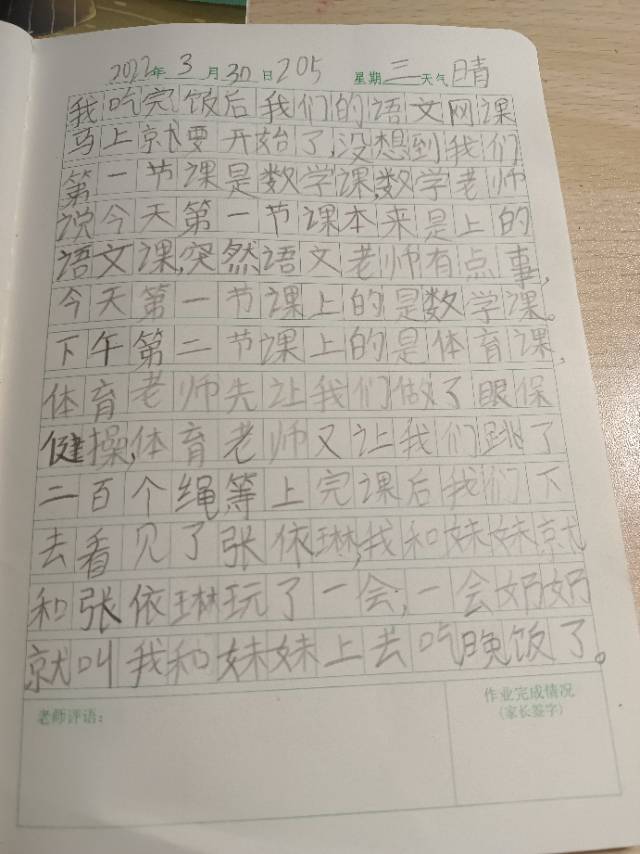 2022年3月30日205 星期三天气晴
我吃完饭后我们的语文网课
马上就要开始了,没想到我们
第一节课是数学课,数学老师
说今天第一节课本来是上的
语文课,突然语文老师有点事,
今天第一节课上的是数学课。
下午第二节课上的是体育课,
体育老师先让我们做了眼保
健操,体育老师又让我们跳了
二百个绳等上完课后我们下
去看见了张依琳,我和妹妹就
和张依琳玩了一会,一会奶奶
就叫我和妹妹上去吃晚饭了。
老师评语:
作业完成情况
(家长签字)